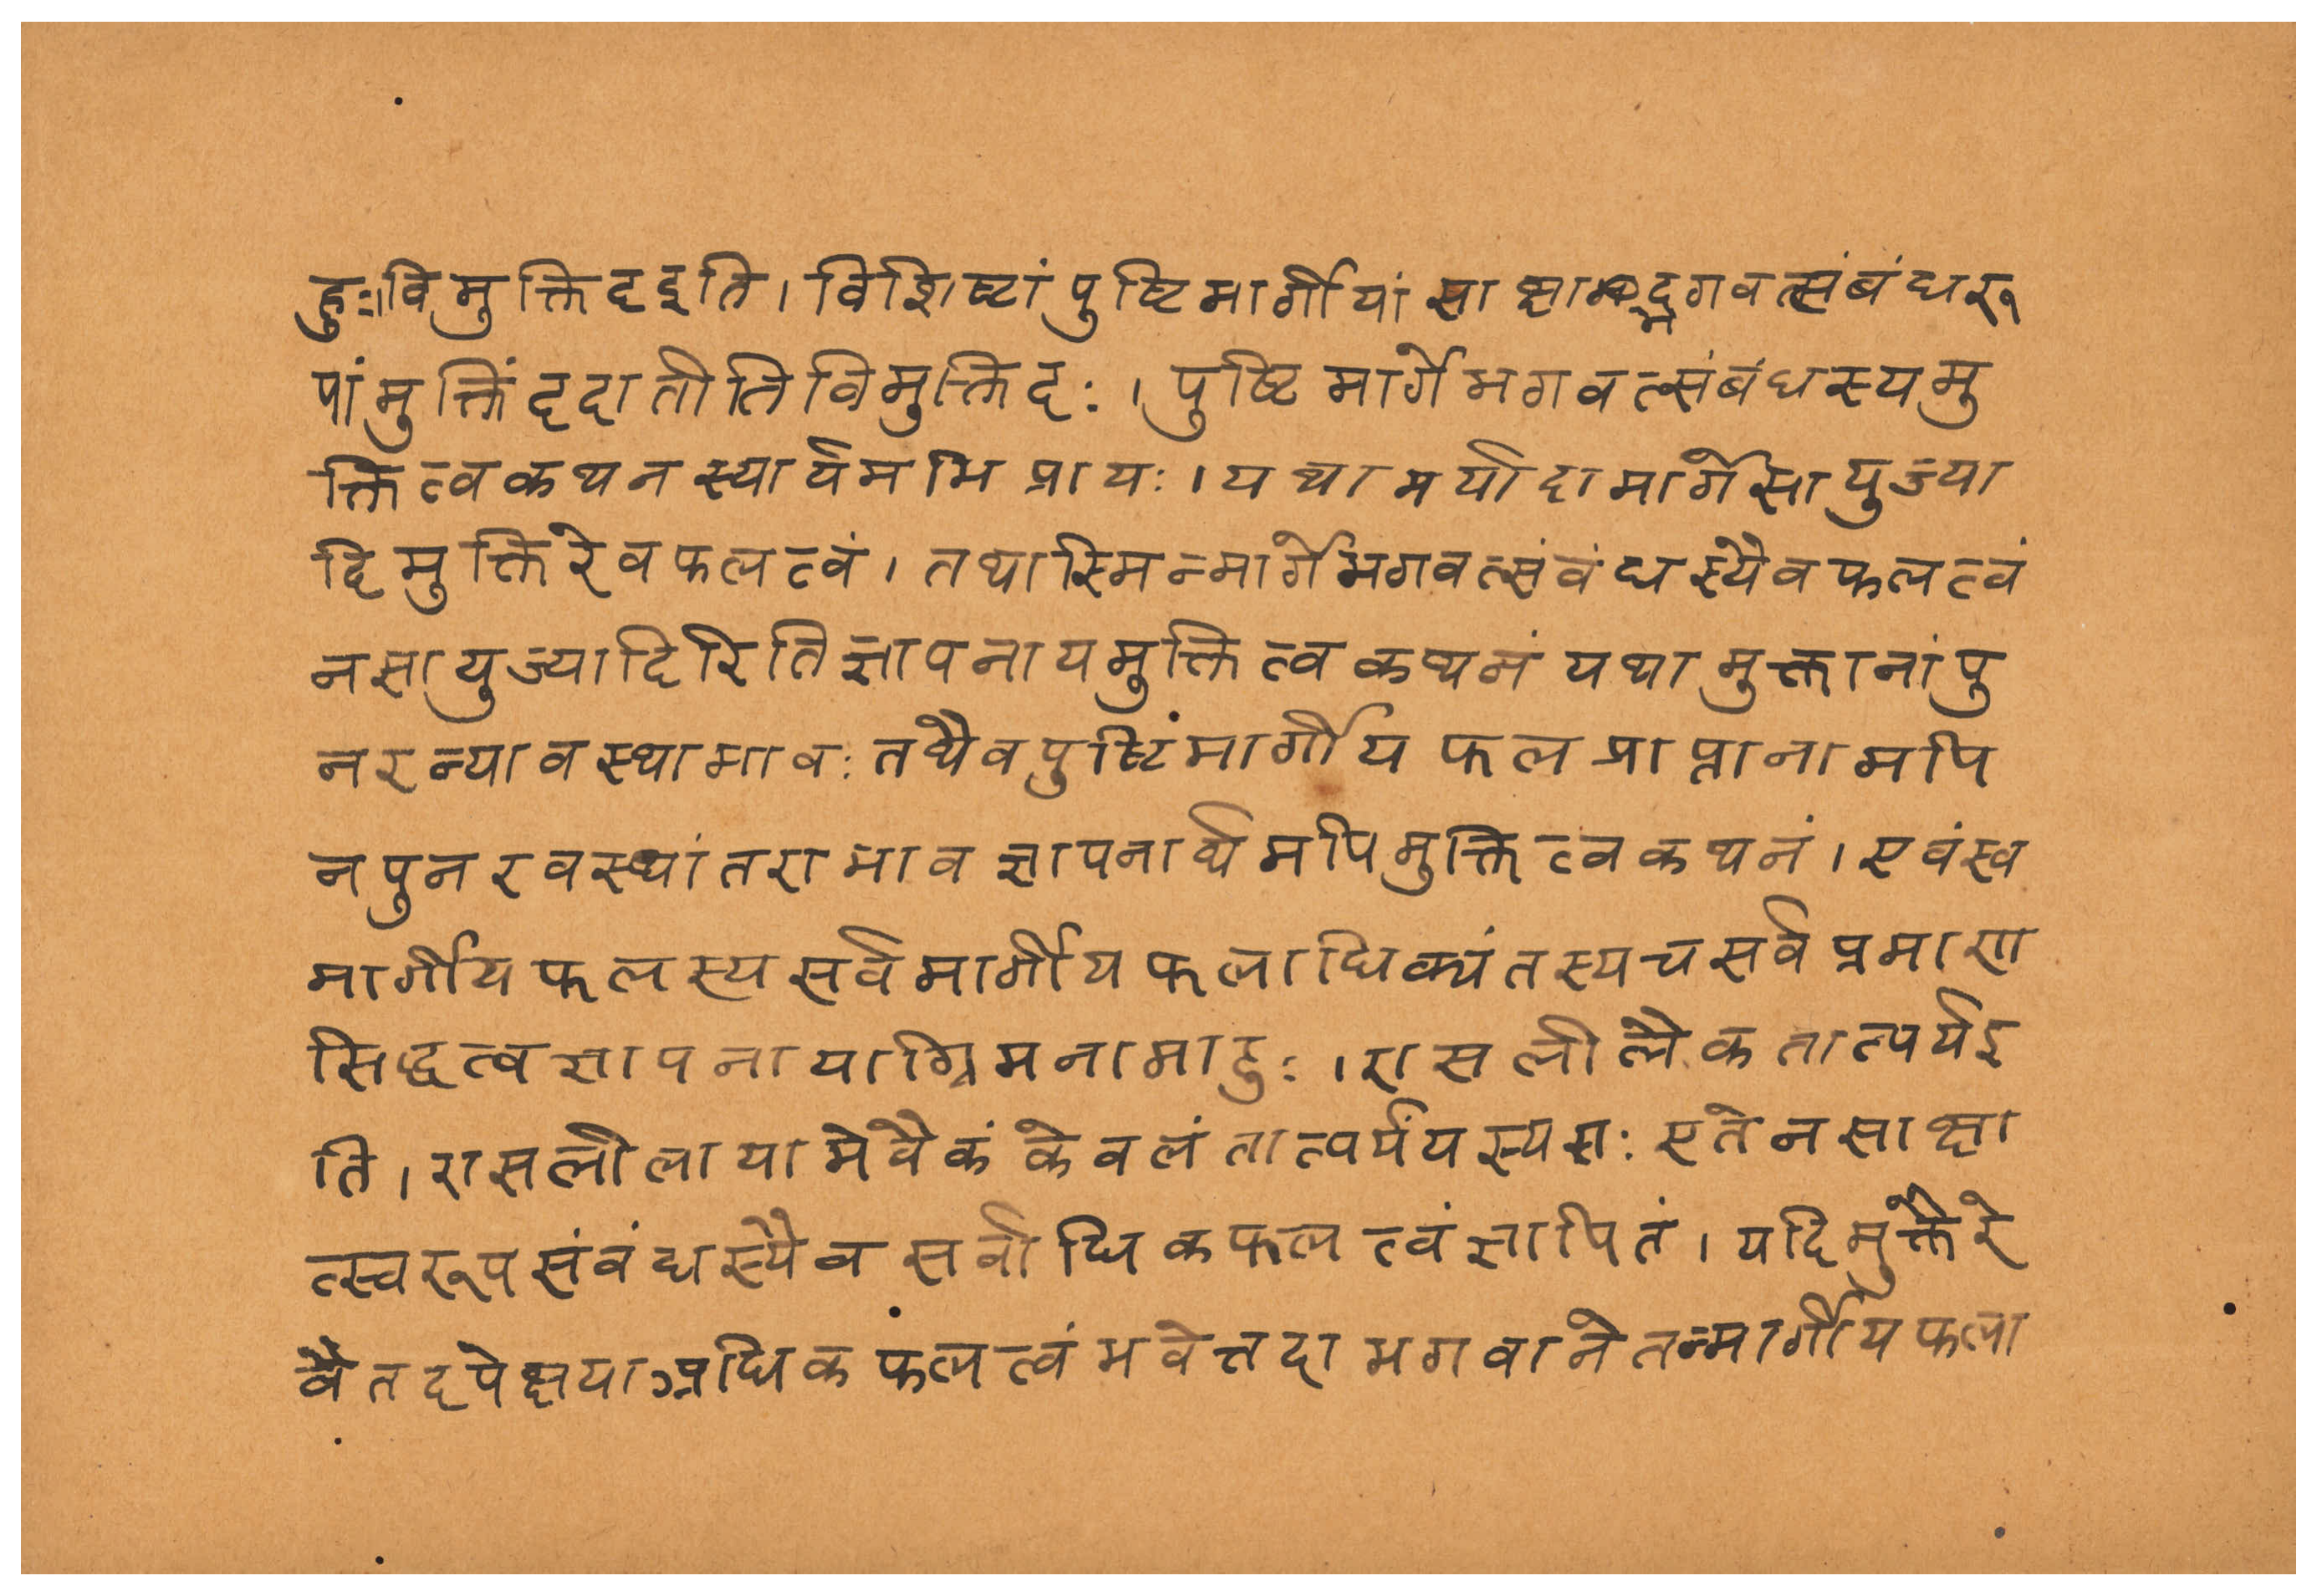 हुः।विमुक्तिदइति।विशिष्टांपुष्टिमार्गीयांसाक्षाद्भगवत्संबंधरू
पांमुक्तिंददातीतिविमुक्तिदः।पुष्टिमार्गेभगवत्संबंधस्यमु
क्तित्वकथनस्यार्यमभिप्रायः।यथामर्यादामार्गेसायुज्या
दिमुक्तिरेवफलत्वं।तथास्मिन्मार्गेभगवत्संवंधस्यैवफलत्वं
नसायुज्यादिरितिज्ञापनायमुक्तित्वकथनंयथामुक्तानांपु
नरन्यावस्थाभावःतथैवपुष्टिंमार्गीयफलप्राप्तानामपि
नपुनरवस्थांतराभावज्ञापनार्थमपिमुक्तित्वकथनं।एवंस्व
मार्गीयफलस्यसर्वमार्गीयफलाधिक्यंतस्यचसर्वप्रमाण
सिद्धत्वज्ञापनायाग्रिमनामाहुः।रासलीलैकतात्पर्यइ
ति।रासलीलायामेवैकंकेवलंतात्पर्यंयस्यसः एतेनसाक्षा
त्स्वरूपसंवंधस्यैवसर्वाधिकफलत्वंज्ञापितं।यदिमुक्तेरे
वैतदपेक्षयाऽधिकफलत्वंभवेत्तदाभगवानेतन्मार्गीयफला